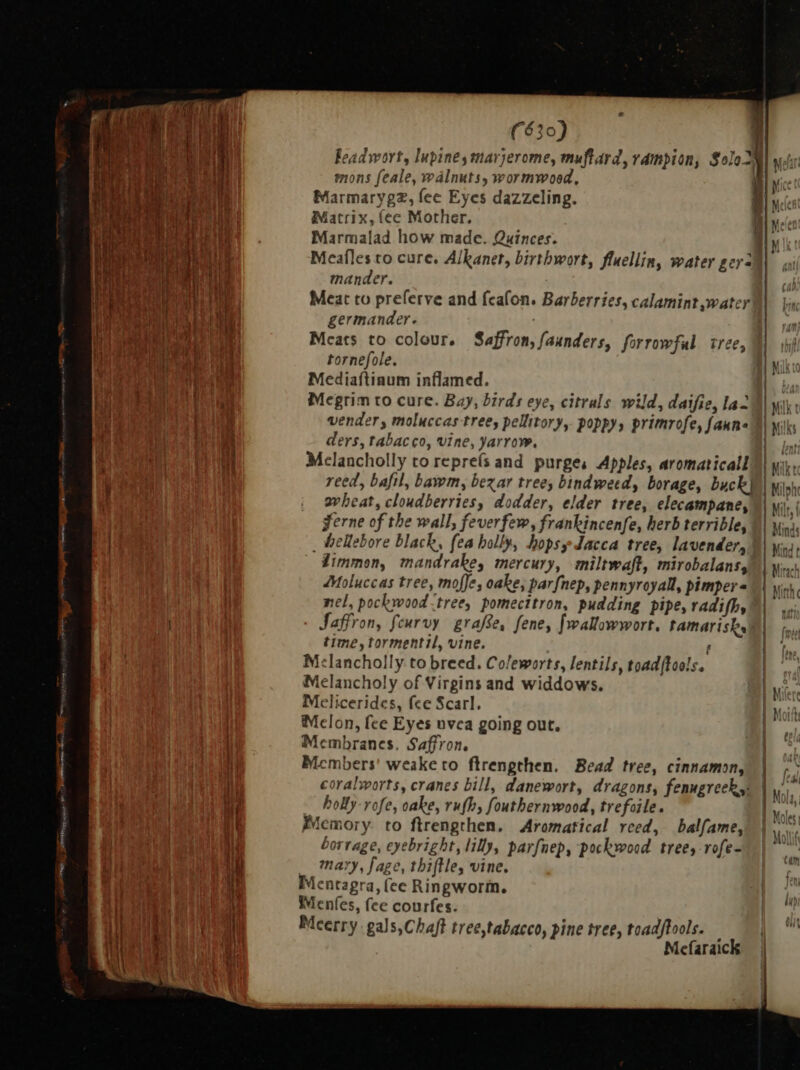 (630)
leadwort, lupine, marjerome, muſtard, rampion, Solo-
mons ſeale, walnuts, wormwood.
Marmarygæ, ſee Eyes dazzeling.
Matrix, ſee Mother.
Marmalad how made. Quinces.
Meaſles to cure. Alkanet, birthwort, fluellin, water ger-
mander.
Meat to preſerve and ſeaſon. Barberries, calamint, water
germander.
Meats to colour. Saffron, ſaunders, ſorrowful tree,
torneſole.
Mediaſtinum inflamed.
Megrim to cure. Bay, birds eye, citruls wild, daiſie, la-
vender, moluccas tree, pellitory, poppy, primroſe, ſaun-
ders, tabacco, vine, yarrow.
Melancholly to repreſs and purge. Apples, aromaticall
reed, baſil, bawm, bezar tree, bindweed, borage, buck
wheat, cloudberries, dodder, elder tree, elecampane,
ferne of the wall, feverfew, frankincenſe, herb terrible,
hellebore black, ſea holly, hops, Jacca tree, lavender,
limmon, mandrake, mercury, miltwaſt, mirobalans,
Moluccas tree, moſſe, oake, parſnep, pennyroyall, pimper-
nel, pockwood tree, pomecitron, pudding pipe, radiſh,
ſaffron, ſcurvy graſſe, ſene, ſwallowwort, tamarisk,
time, tormentil, vine.
Melancholly to breed. Coleworts, lentils, toadſtools.
Melancholy of Virgins and widdows.
Melicerides, ſee Scarl.
Melon, ſee Eyes uvea going out.
Membranes. Saffron.
Members' weake to ſtrengthen. Bead tree, cinnamon,
coralworts, cranes bill, danewort, dragons, fenugreek,
holly-roſe, oake, ruſh, ſouthernwood, trefoile.
Memory to ſtrengthen. Aromatical reed, balſame,
borrage, eyebright, lilly, parſnep, pockwood tree, roſe-
mary, ſage, thiſtle, vine.
Mentagra, ſee Ringworm.
Menſes, ſee courſes.
Meerry gals, Chaſt tree, tabacco, pine tree, toadſtools.
Meſaraick